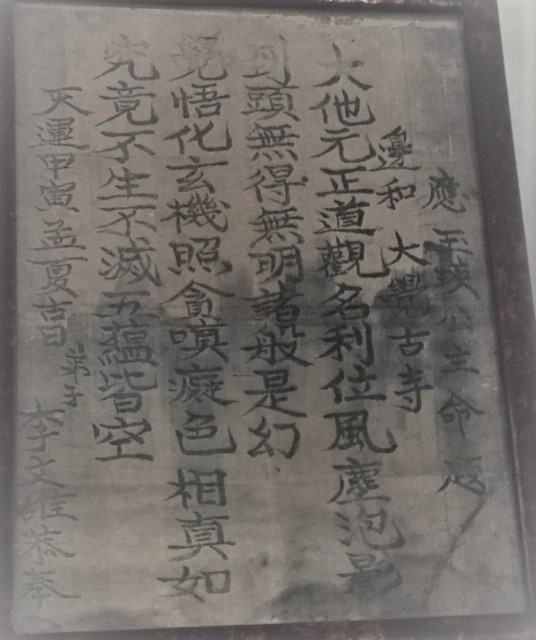 應玉瑛公主命題
邊和 大覺古寺
大他元正道觀名利位風塵泡影
到頭無得無明諸般是幻
覺悟化玄機照貪嗔癡色相真如
究竟不生不滅五蘊皆空
天運甲寅孟夏吉日 弟子 李文雄恭奉